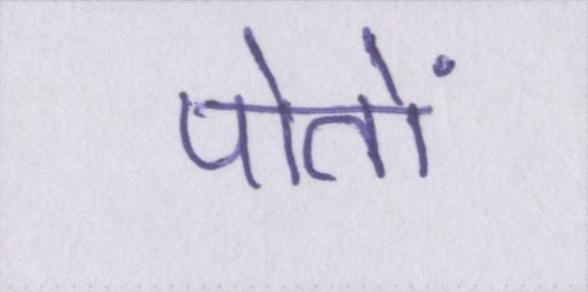 पोतों